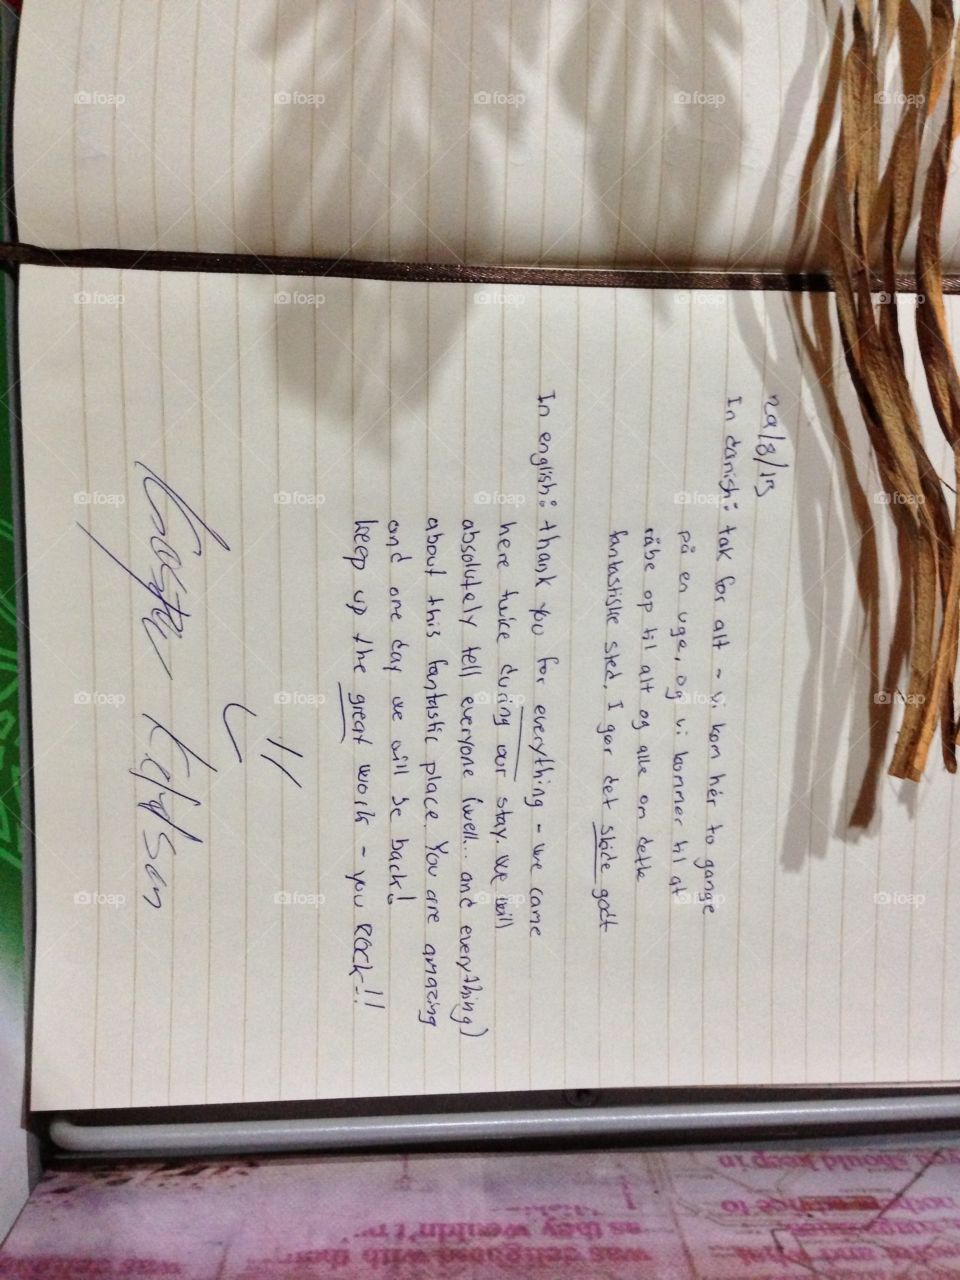 29/8/13
In danish: tak for alt - vi kom hér to gange
på en uge, og vi kommer til at
råbe op til alt og alle om dette
fantastiske sted, I gør det skide godt
In english: thank you for everything - we came
here twice during our stay. we will
absolutely tell everyone (well... and everything)
about this fantastic place. You are amazing
and one day we will be back!
keep up the great work - you ROCK!!
foap